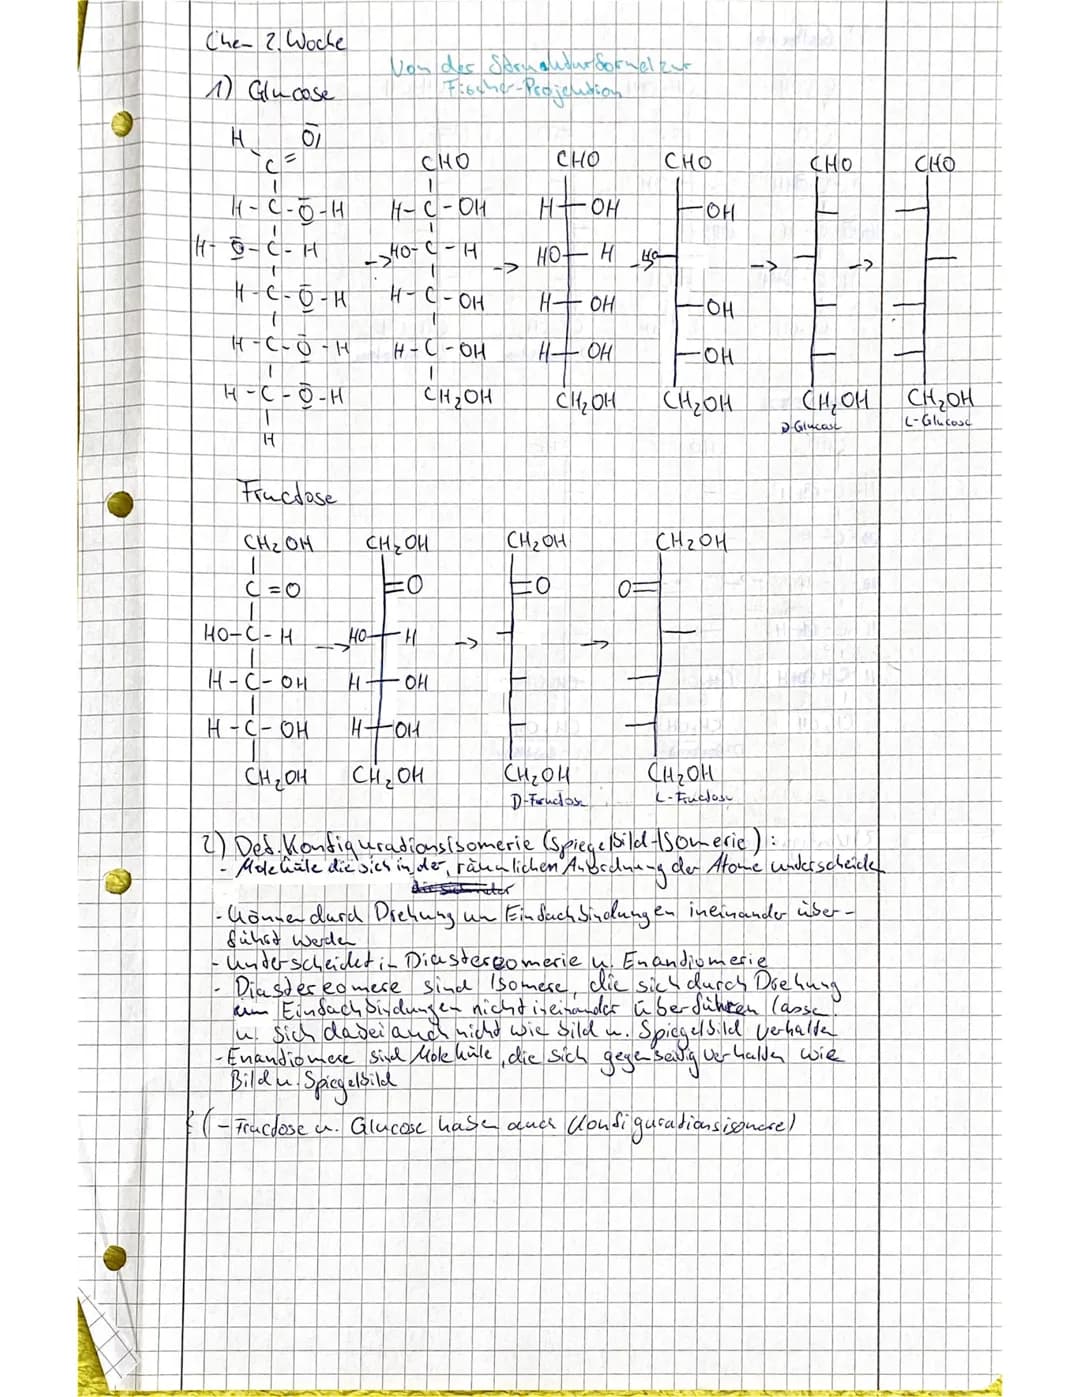 Che- 2. Woche
Von der Strukturformel zur
Fischer-Projektion
1) Glucose
H O|
C =
H - C - O - H
H - O - C - H
H - C - O - H
H - C - O - H
H - C - O - H
H
CHO
H - C - OH
-> HO - C - H
H - C - OH
H - C - OH
CH₂OH
->
CHO
H OH
HO H
H OH
H OH
CH₂OH
CHO
OH
HO
OH
OH
CH₂OH
->
CHO
CH₂OH
D-Glucose
->
CHO
CH₂OH
L-Glucose
Fructose
CH₂OH
C = O
HO - C - H
H - C - OH
H - C - OH
CH₂OH
->
CH₂OH
=O
HO H
H OH
H OH
CH₂OH
->
CH₂OH
=O
CH₂OH
D-Fructose
->
CH₂OH
O=
CH₂OH
L-Fructose
2) Def. Konfigurationsisomerie (Spiegelbild-Isomerie) :
- Moleküle die sich in der räumlichen Anordnung der Atome unterscheiden
- können durch Drehung um Einfachbindungen ineinander über-
führt werden
- Unterscheidet in Diastereomerie u. Enantiomerie
- Diastereomere sind Isomere, die sich durch Drehung
um Einfachbindungen nicht ineinander überführen lassen
u. sich dabei auch nicht wie Bild u. Spiegelbild verhalten
- Enantiomere sind Moleküle, die sich gegenseitig verhalten wie
Bild u. Spiegelbild
(- Fructose u. Glucose haben auch Konfigurationsisomere)